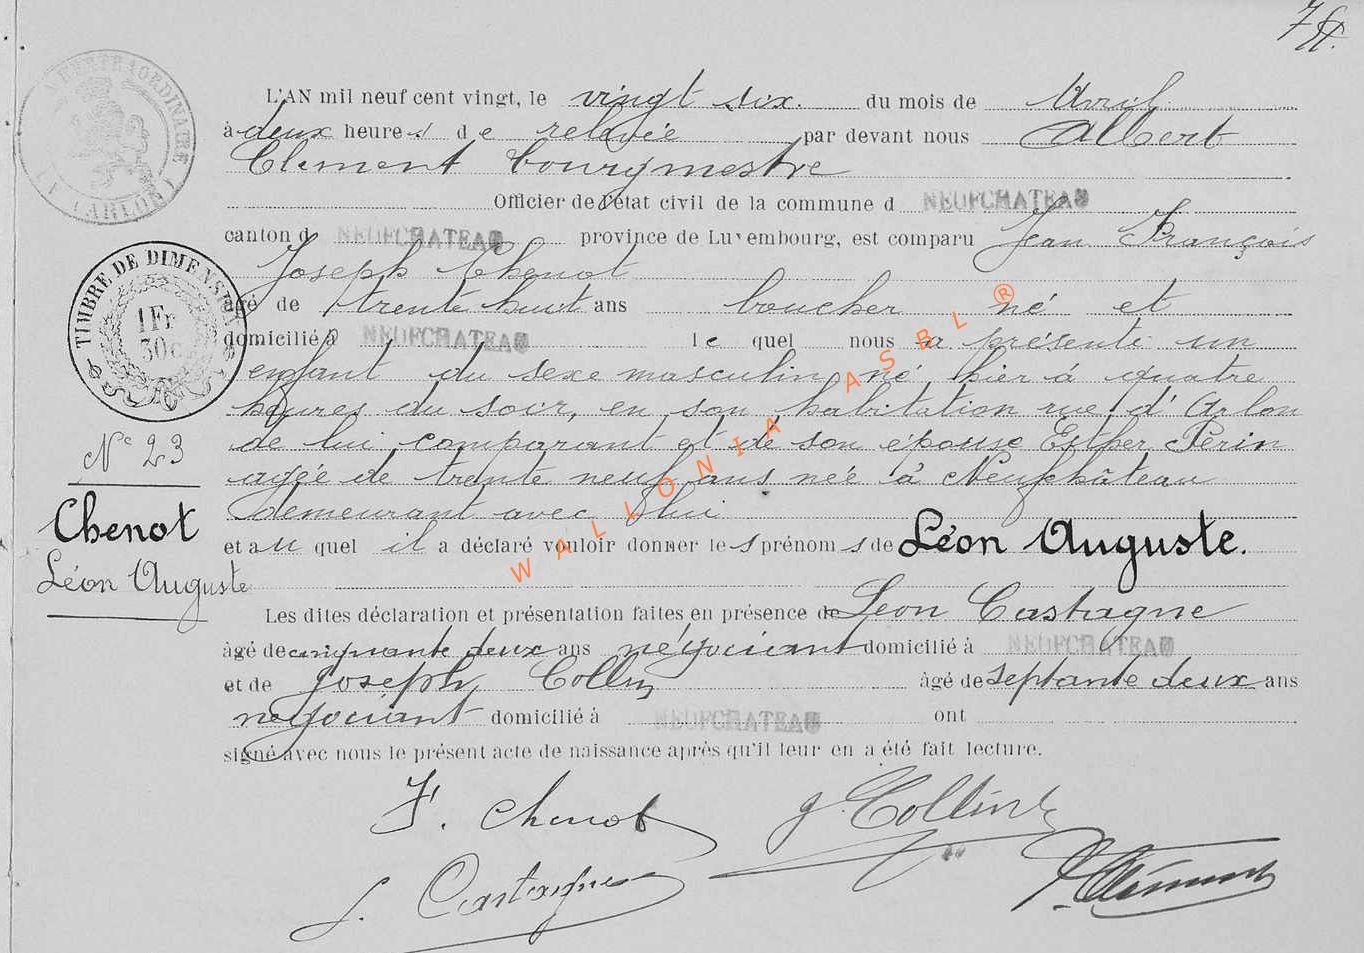 L'AN mil neuf cent vingt, le vingt six. du mois de Avril
à deux heures de relevée par devant nous Albert
Clement bourgmestre
Officier de l'état civil de la commune d NEUFCHATEAU
canton d NEUFCHATEAU province de Luxembourg, est comparu Jean François
Joseph Chenot
âgé de trente huit ans boucher né et
domicilié à NEUFCHATEAU le quel nous a présenté un
enfant du sexe masculin né hier à quatre
heures du soir, en son habitation rue d'Arlon
de lui comparant et de son épouse Esther Perin
agée de trente neuf ans née à Neufchâteau
demeurant avec lui
et au quel il a déclaré vouloir donner les prénoms de Léon Auguste.
Les dites déclaration et présentation faites en présence de Léon Castagne
âgé de cinquante deux ans négociant domicilié à NEUFCHATEAU
et de Joseph Collin âgé de septante deux ans
negociant domicilié à NEUFCHATEAU ont
signé avec nous le présent acte de naissance après qu'il leur en a été fait lecture.
F. Chenot
J. Collin
Castagne
Clément
TIMBRE DE DIMENSION
1Fr
30c
N° 23
Chenot
Léon Auguste
WALLONIA ASBL ®